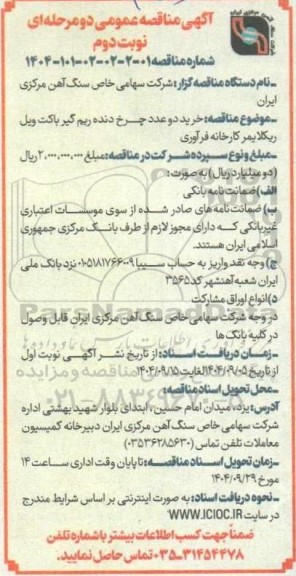 آگهی مناقصه عمومی دو مرحله ای
نوبت دوم
شماره مناقصه ۰۱-۲-۰۲-۰۲-۱۰۱-۱۴۰۴
-نام دستگاه مناقصه گزار: شرکت سهامی خاص سنگ آهن مرکزی
ایران
-موضوع مناقصه: خرید دو عدد چرخ دنده ریم گیر باکت ویل
ریکلایمر کارخانه فرآوری
-مبلغ ونوع سپرده شرکت در مناقصه: مبلغ ۲,۰۰۰,۰۰۰,۰۰۰ ریال
(دو میلیارد ریال) به صورت:
الف) ضمانت نامه بانکی
ب) ضمانت نامه های صادر شده از سوی موسسات اعتباری
غیربانکی که دارای مجوز لازم از طرف بانک مرکزی جمهوری
اسلامی ایران هستند.
ج) وجه نقد واریز به حساب سیبا ۰۱۰۵۱۸۱۷۶۶۰۰۹ نزد بانک ملی
ایران شعبه آهنشهر کد ۳۵۶۵
د) انواع اوراق مشارکت
در وجه شرکت سهامی خاص سنگ آهن مرکزی ایران قابل وصول
در کلیه بانک ها
-زمان دریافت اسناد: از تاریخ نشر آگهی نوبت اول
از تاریخ ۱۴۰۴/۰۹/۰۵ لغایت ۱۴۰۴/۰۹/۱۵
-محل تحویل اسناد مناقصه:
آدرس: یزد، میدان امام حسین، ابتدای بلوار شهید بهشتی اداره
شرکت سهامی خاص سنگ آهن مرکزی ایران دبیرخانه کمیسیون
معاملات تلفن تماس (۰۳۵۳۶۲۸۵۶۳۰)
-زمان تحویل اسناد مناقصه: تا پایان وقت اداری ساعت ۱۴
مورخ ۱۴۰۴/۰۹/۲۹
-نحوه دریافت اسناد: به صورت اینترنتی بر اساس شرایط مندرج
در سایت WWW.ICIOC.IR
ضمناً جهت کسب اطلاعات بیشتر با شماره تلفن
۰۳۵-۳۱۴۵۴۴۷۸ تماس حاصل نمایید.